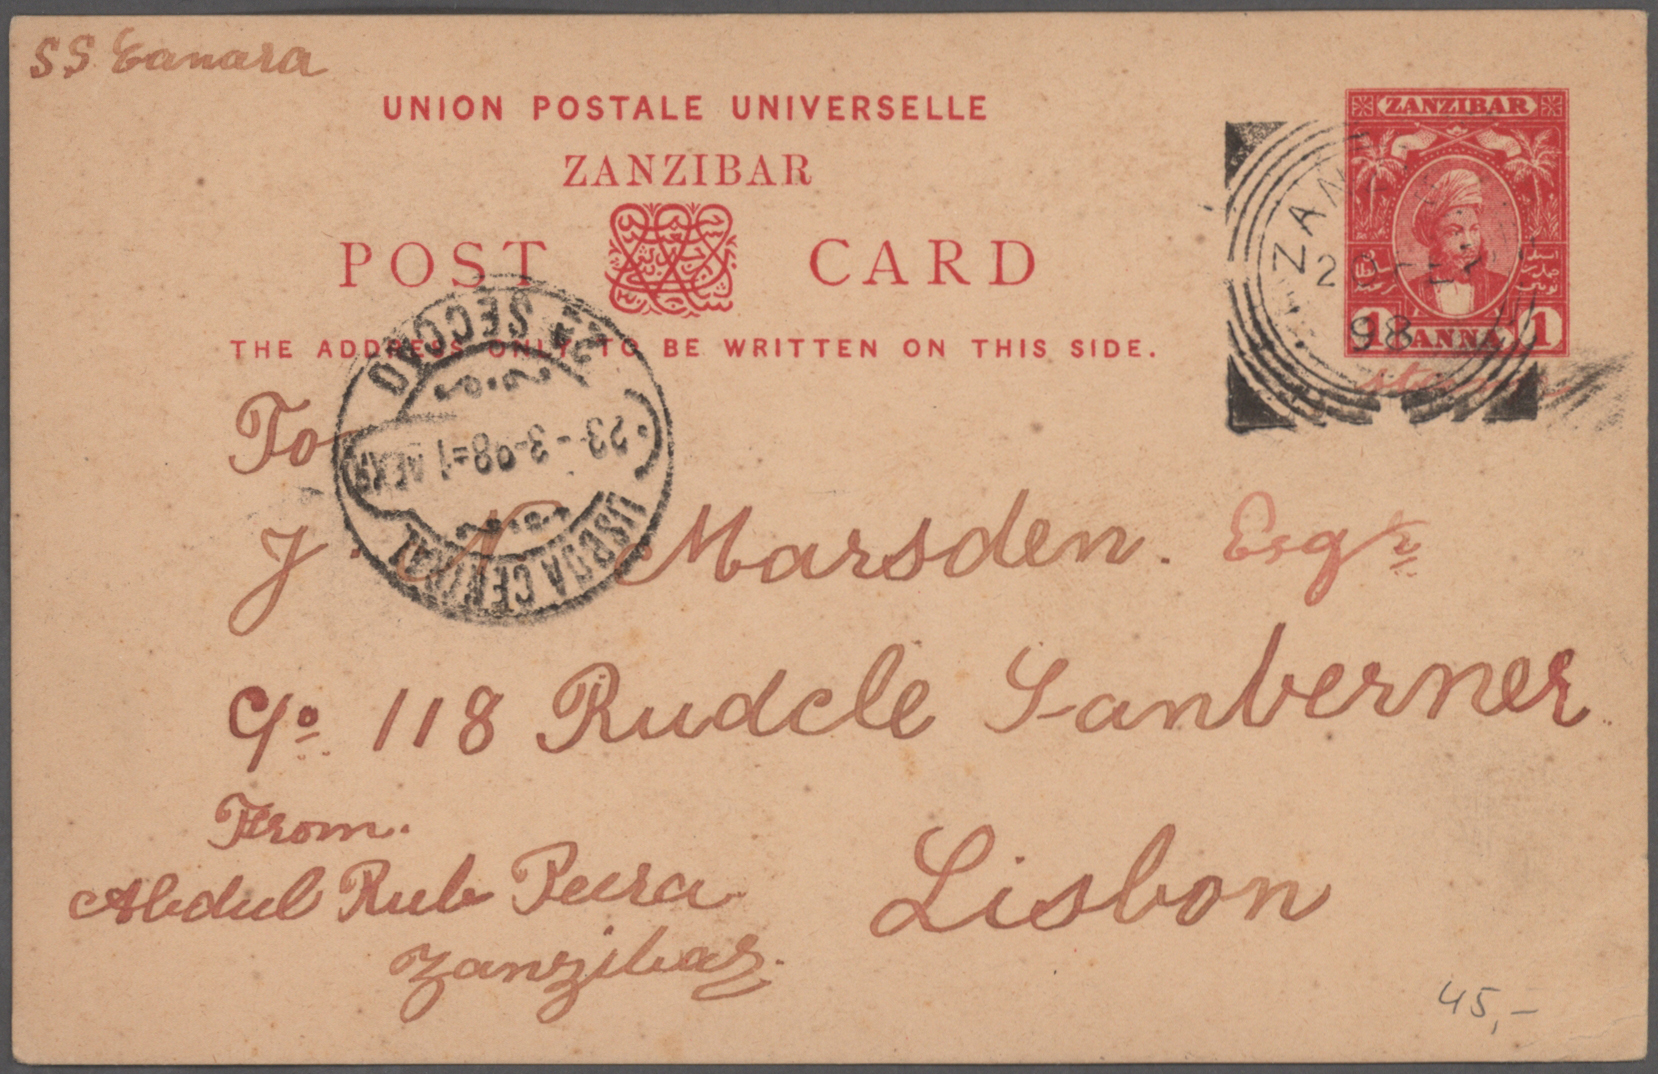 SS Canara
UNION POSTALE UNIVERSELLE
ZANZIBAR
POST CARD
THE ADDRESS ONLY TO BE WRITTEN ON THIS SIDE.
ZANZIBAR
1 ANNA 1
ZAN
98
2ª SECCÃO
23-3-98=1
LISBOA CENTRAL
To
J. N. Marsden. Esqr
C/o 118 Rudcle Sanberner
From.
Abdul Rub Peera
Zanzibar.
Lisbon
45,-